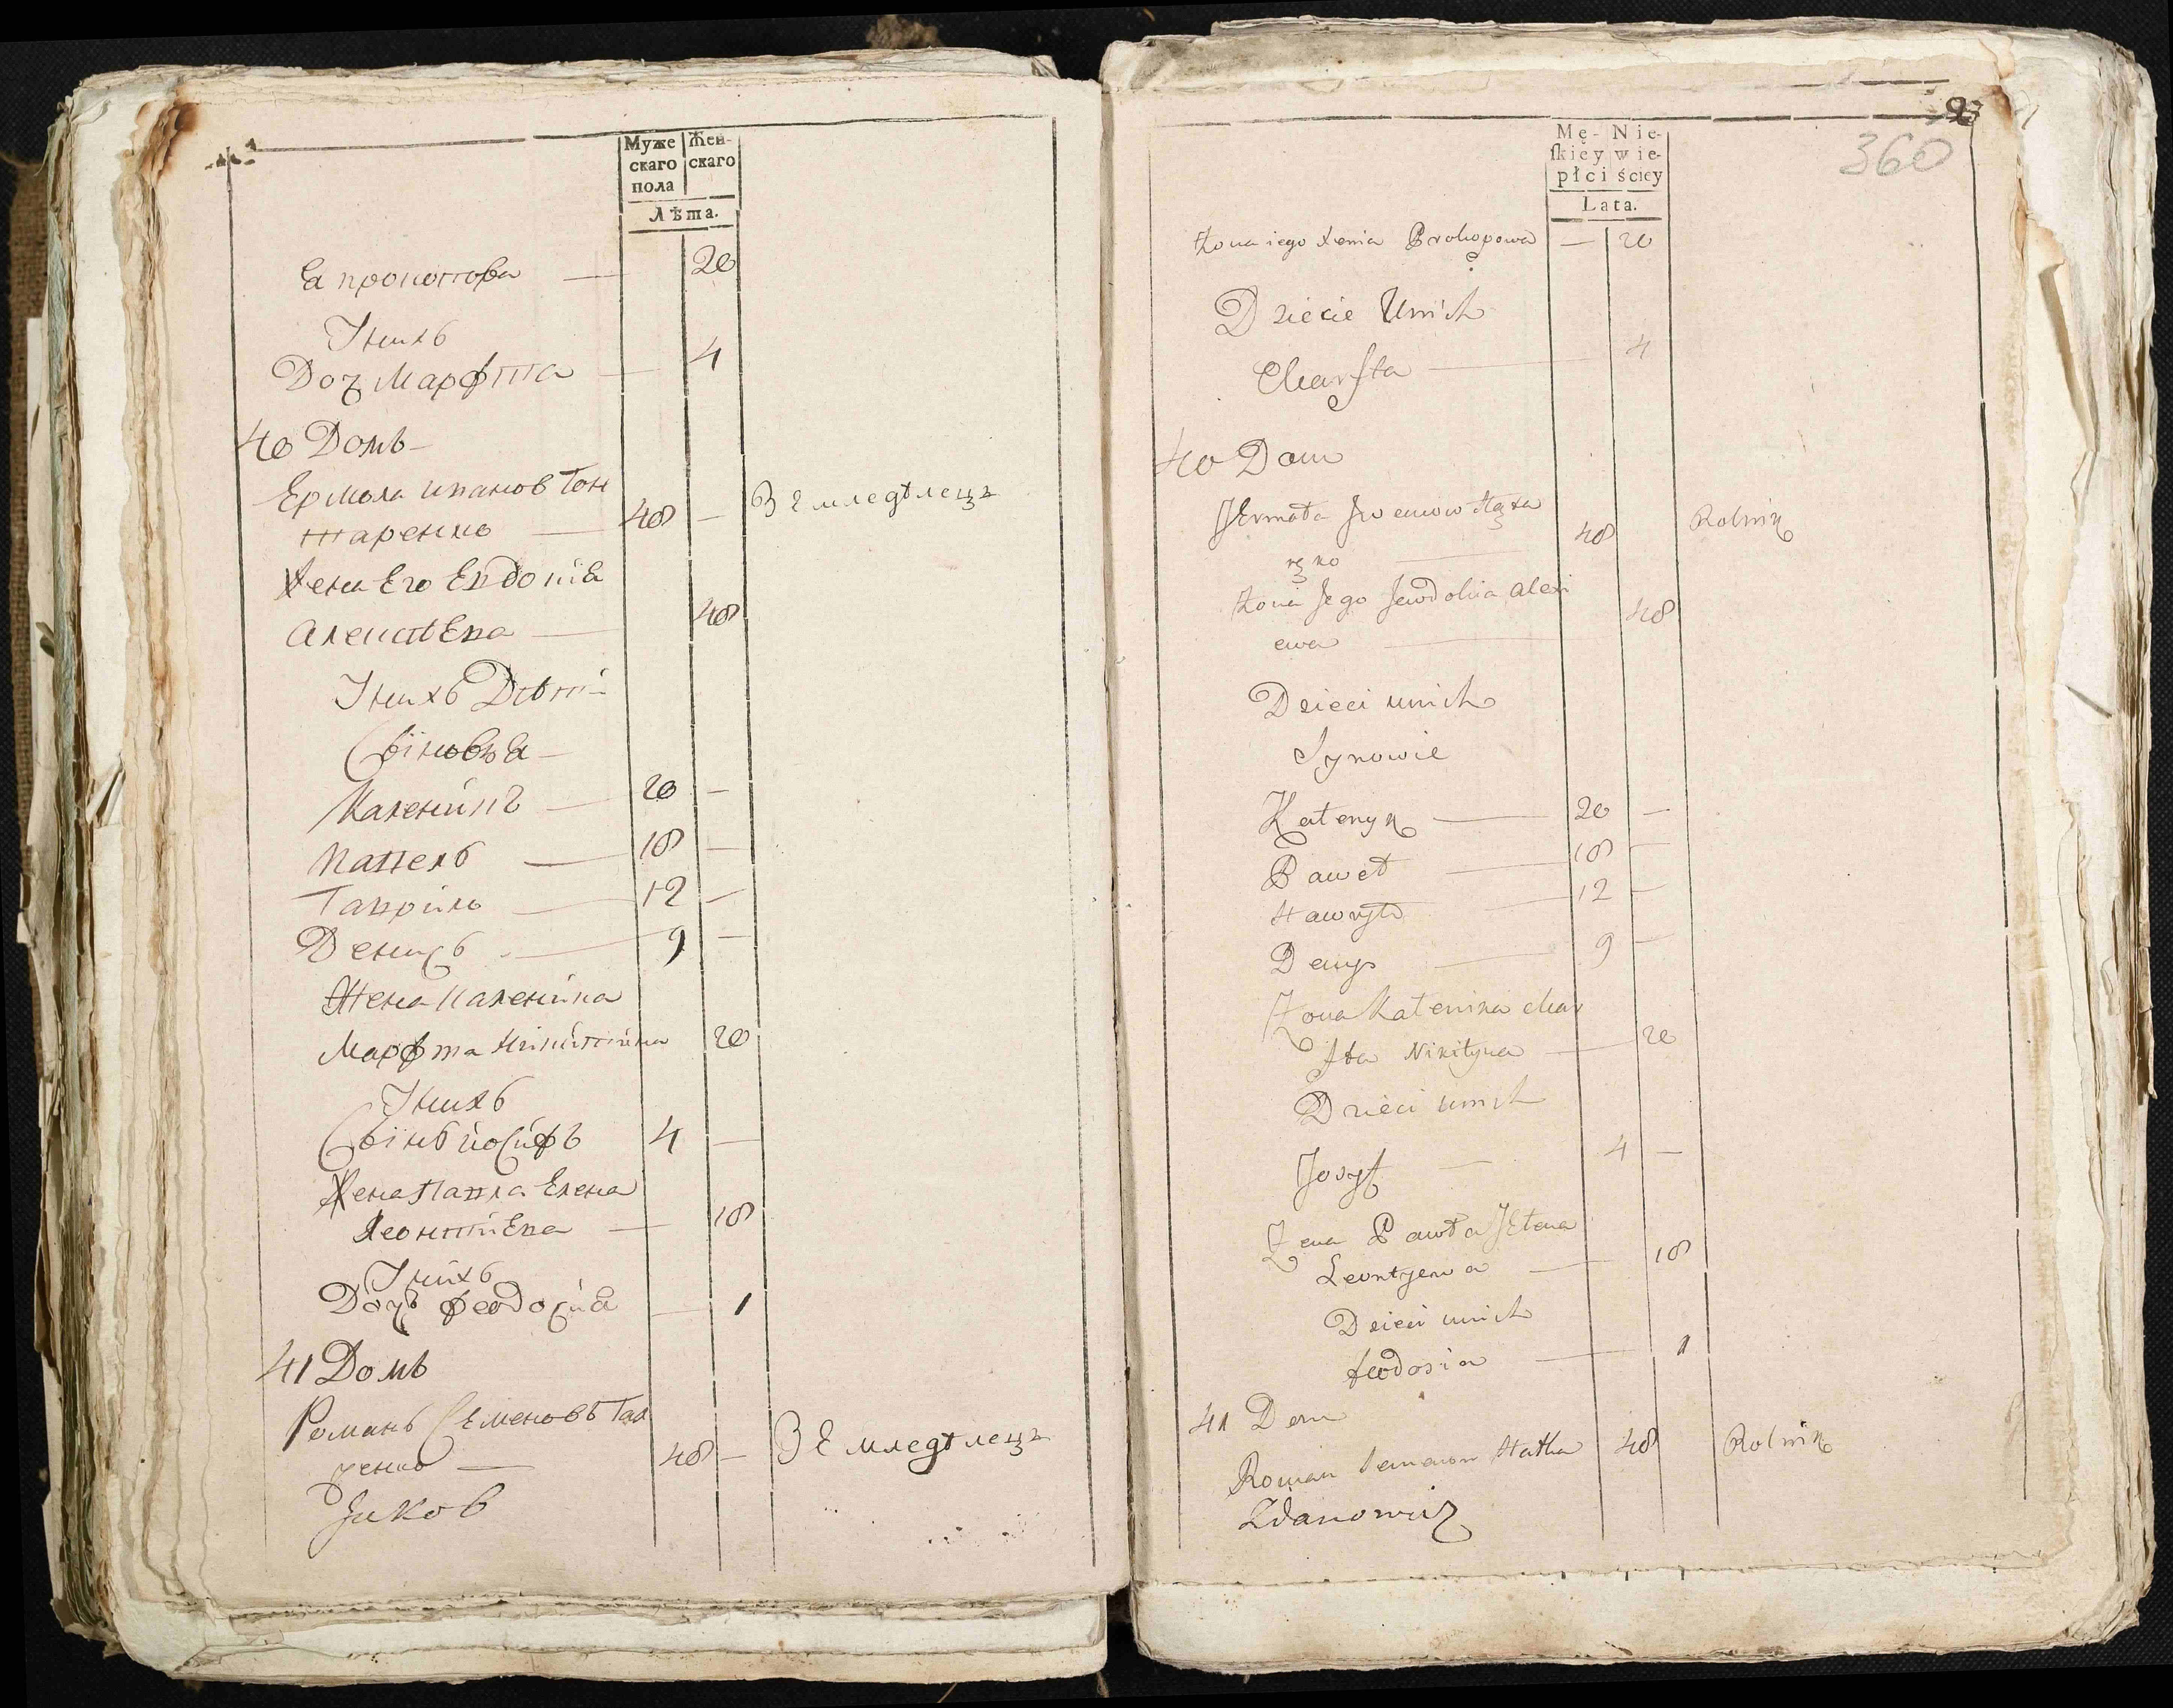 Муже
скаго
пола
Жен-
скаго
Лѣта.
Я прокопова — 20
Унихъ
Доч Марфта — 4
40 Домъ
Ермола ивановъ Гон
таренко — 48 — Земледѣлецъ
Жена Его Евдокия
Алексѣева — 48
Унихъ Дѣти
Сыновья
Каленикъ — 20 —
Павелъ — 18 —
Гаврило — 12 —
Денисъ — 9 —
Жена Каленика
Марфта Никитина 20
Унихъ
Сынъ иосифъ 4 —
Жена Павла Елена
Леонтиева — 18
Унихъ
Дочъ феодосия — 1
41 Домъ
Романъ Семеновъ Гал
ченко — 48 — Земледѣлецъ
Яков
360
Mę-
skiey
płci
Nie-
wie-
ściey
Lata.
Żona iego Xenia Prokopowa — 20
Dziecie Unich
Marfta — 4
40 Dom
Jermoła Iwanow
rzko — 48 Rolnik
Żona Jego Jewdokia Alexi
ewa — 48
Dzieci unich
Synowie
Kalenyk — 20 —
Paweł — 18 —
Hawryło — 12 —
Denys — 9 —
Żona Kalenika Mar
fta Nikityna — 20
Dzieci unich
Josyf — 4 —
Żona Pawła Jelena
Leontjewa — 18
Dzieci unich
feodosia — 1
41 Dom
Roman Semenow Hałka 48 Rolnik
Zdanowicz